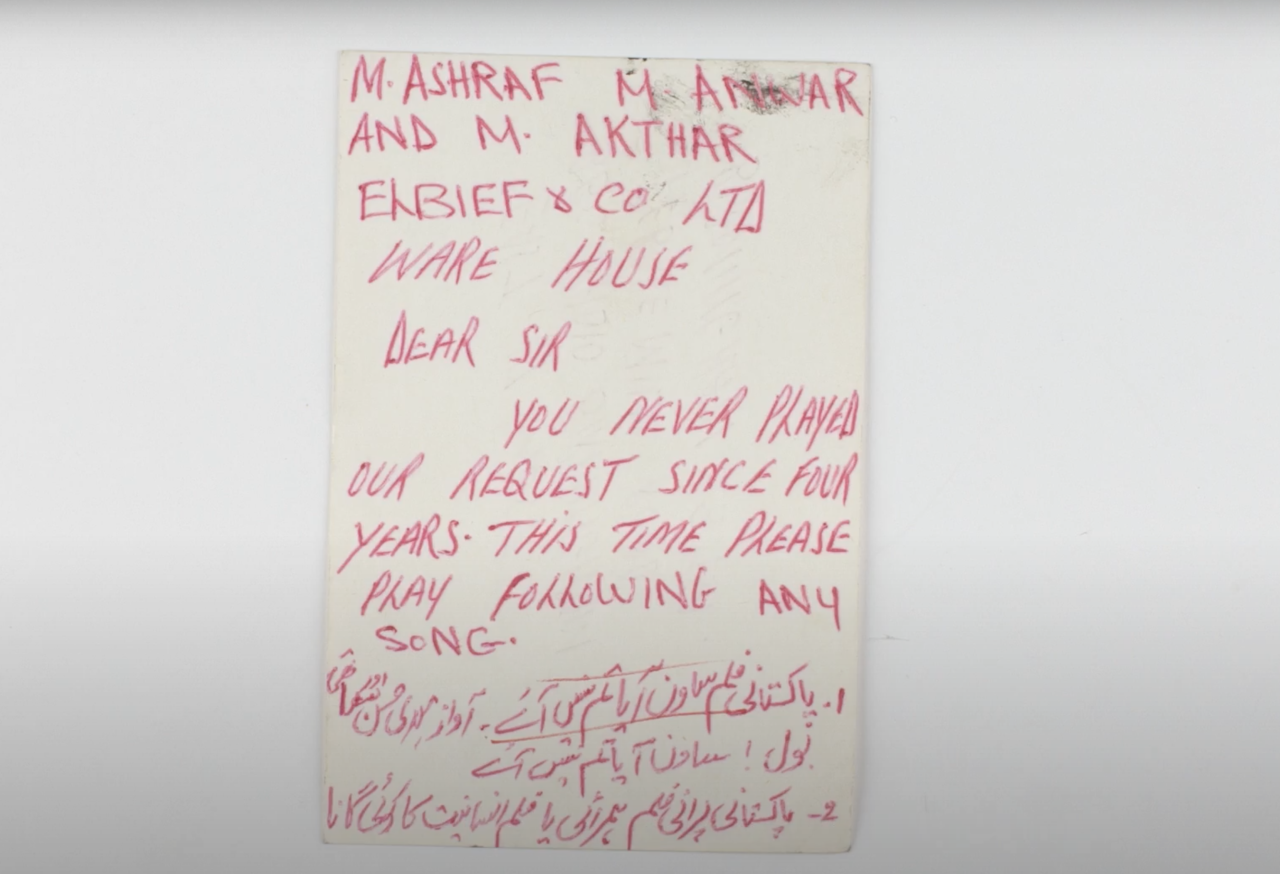 M. ASHRAF M. ANWAR
AND M. AKTHAR
ELBIEF & CO LTD
WARE HOUSE
DEAR SIR
YOU NEVER PLAYED
OUR REQUEST SINCE FOUR
YEARS. THIS TIME PLEASE
PLAY FOLLOWING ANY
SONG.
1. پاکستانی فلم ساون آیا تم نہیں آئے ۔ آواز مہدی حسن
بول ! ساون آیا تم نہیں آئے
2- پاکستانی پرانی فلم ہمراہی یا فلم انسانیت کا کوئی گانا